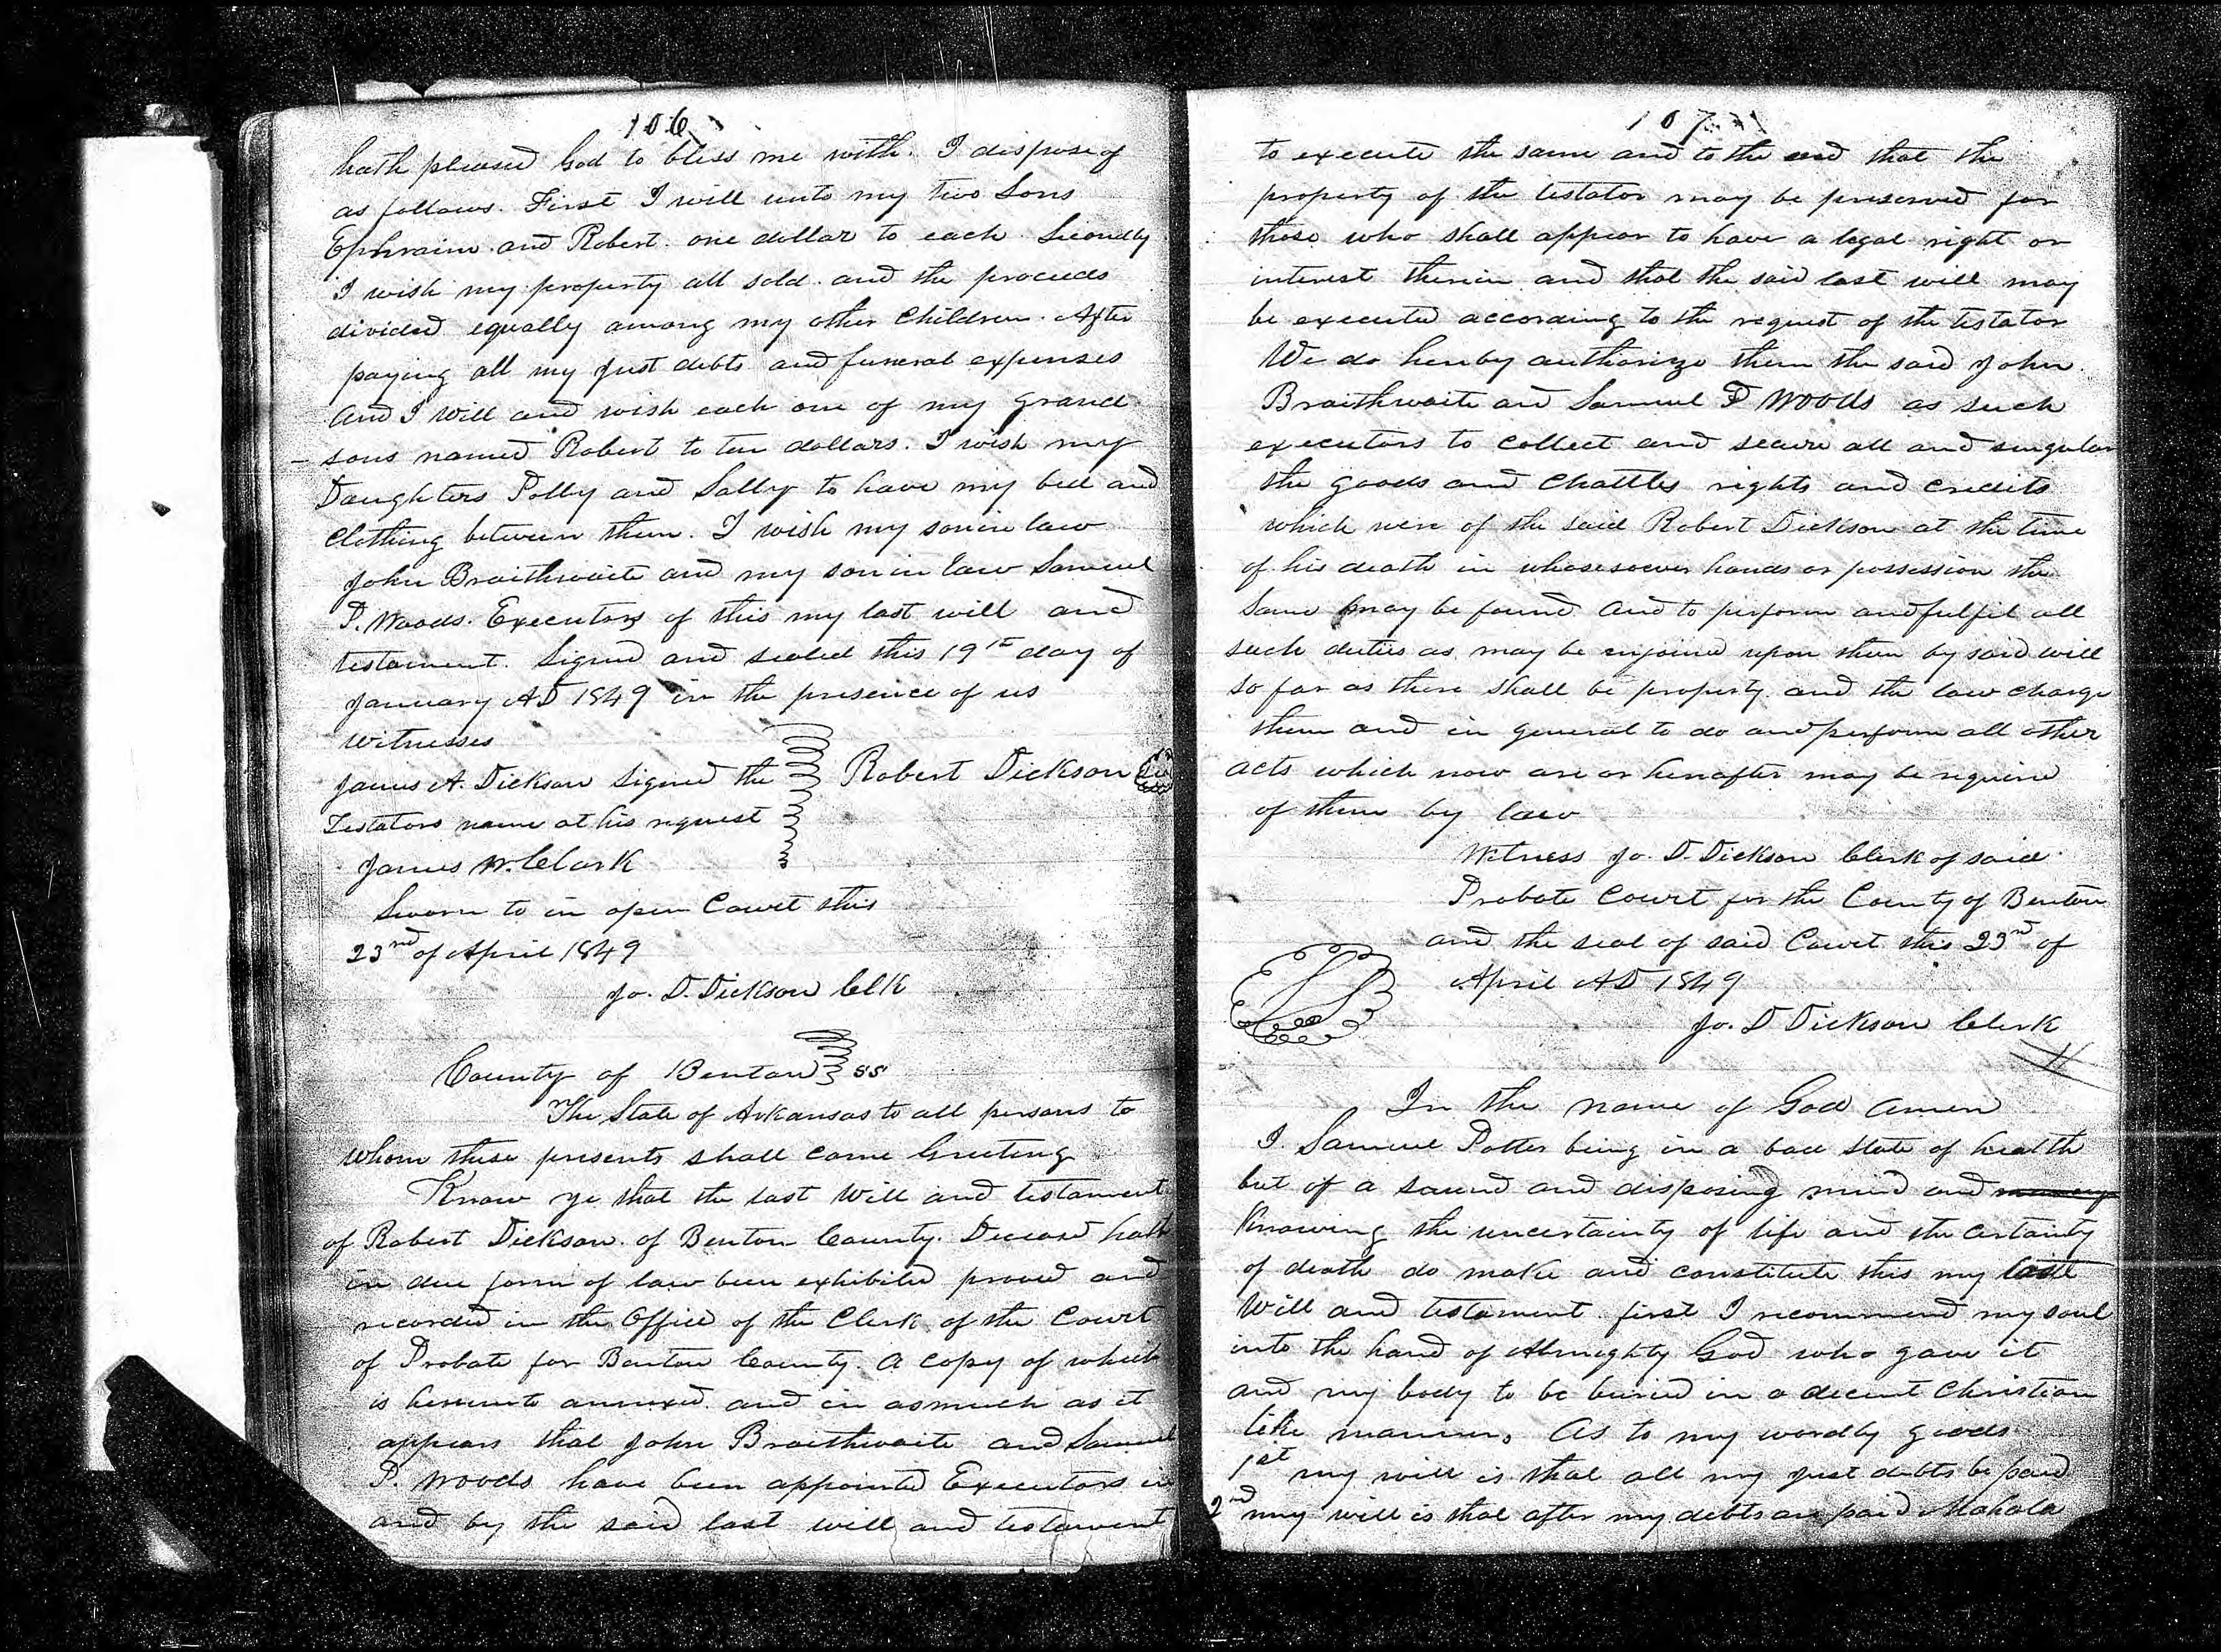 106
hath pleased God to bless me with. I dispose of
as follows. First I will unto my two Sons
Ephraim and Robert one dollar to each Secondly
I wish my property all sold and the proceeds
divided equally among my other Children. After
paying all my Just debts and funeral expenses
And I will and wish each one of my grand
sons named Robert to ten dollars. I wish my
Daughters Polly and Sally to have my bed and
Clothing between them. I wish my son in law
John Braithwaite and my son in law Samuel
P. Woods. Executors of this my last will and
testament. Signed and sealed this 19th day of
January AD 1849 in the presence of us
witnesses
James A. Dickson Signed the Robert Dickson
Testators name at his request
James W. Clark
Sworn to in open Court this
23nd of April 1849
Jo. D. Dickson Clk
County of Benton ss
The State of Arkansas to all persons to
whom these presents shall come Greeting
Know ye that the last Will and testament
of Robert Dickson of Benton County. Deceasd hath
in due form of law been exhibited proved and
recorded in the Office of the Clerk of the Court
of Probate for Benton County. A copy of which
is hereunto annexed and in asmuch as it
appears that John Braithwaite and Samuel
P. Woods have been appointed Executors in
and by the said last will and testament
107
to execute the same and to the end that the
property of the testator may be preserved for
those who shall appear to have a legal right or
interest therein and that the said last will may
be executed according to the request of the testator
We do hereby authorize them the said John
Braithwaite and Samuel P Woods as such
executors to Collect and secure all and singular
the goods and Chattles rights and credits
which were of the said Robert Dickson at the time
of his death in whosesoever hands or possession the
same may be found And to perform and fulfil all
such duties as may be enjoined upon them by said will
so far as there shall be property and the law charge
them and in general to do and perform all other
acts which now are or hereafter may be required
of them by law
Witness Jo. D. Dickson Clerk of said
Probate Court for the County of Benton
and the seal of said Court this 23rd of
April AD 1849
Jo. D Dickson Clerk
In the name of God Amen
I Samuel Potter being in a bad state of health
but of a sound and disposing mind and memory
Knowing the uncertainty of life and the certainty
of death do make and constitute this my last
Will and testament first I recommend my soul
into the hand of Almighty God who gave it
and my body to be buried in a decent Christian
like manner, As to my wordly goods
1st my will is that all my just debts be paid
2nd my will is that after my debts are paid Mahala